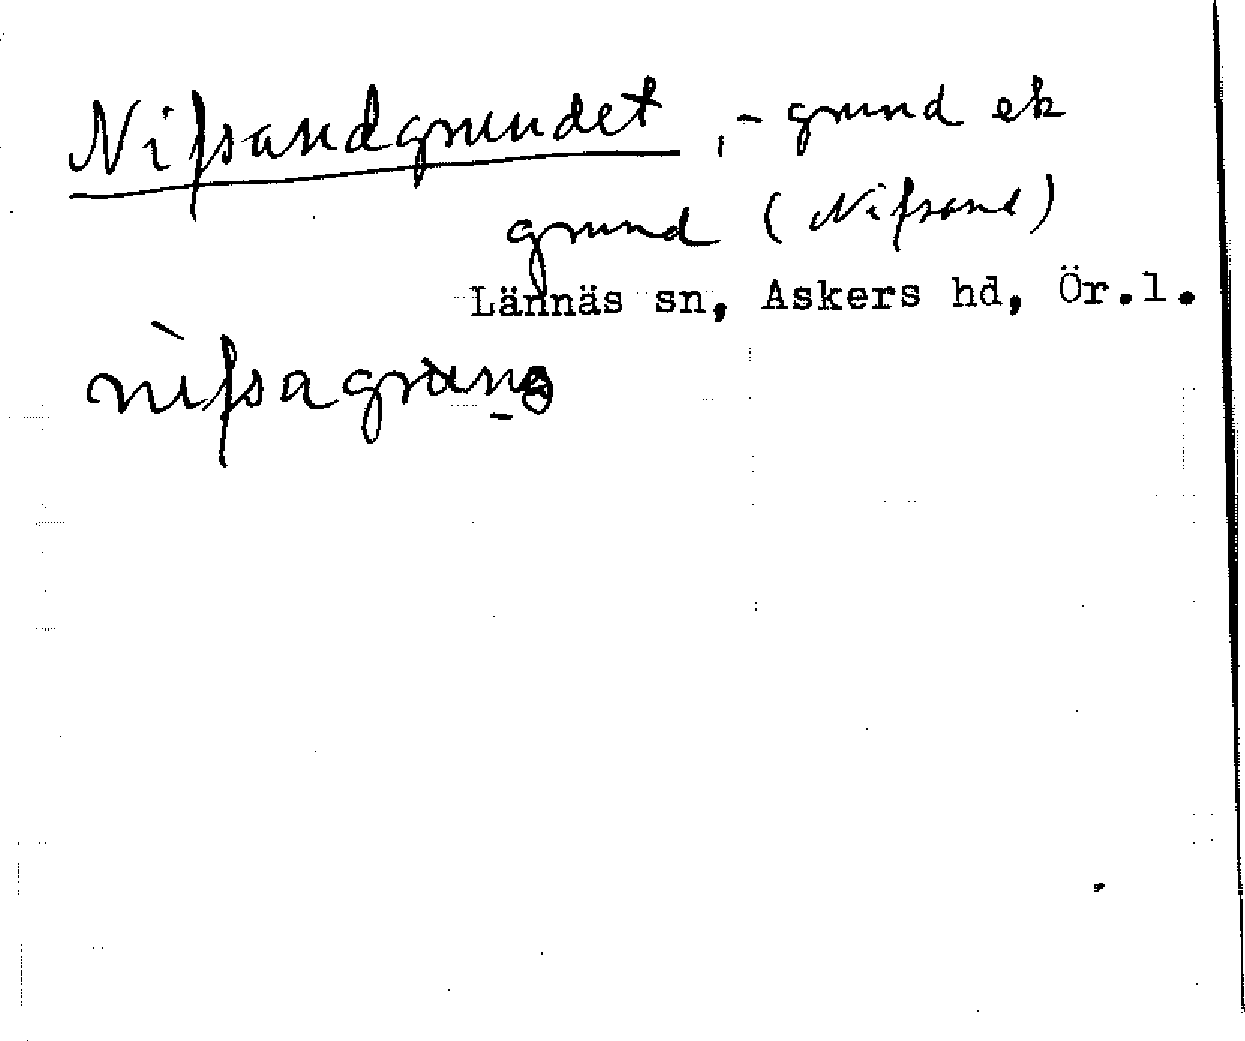 Nifsandgrundet, -grund ek
grund (Nifsand)
Lännäs sn, Askers hd, Ör.l.
nìfsagrùnə